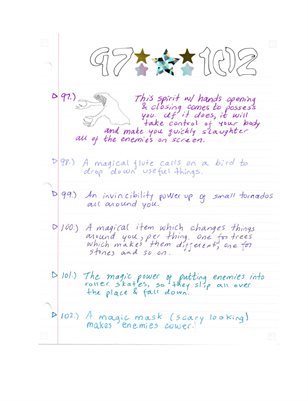 97 102
97.) This spirit w/ hands opening
& closing comes to possess
you. If it does, it will
take control of your body
and make you quickly slaughter
all of the enemies on screen.
98.) A magical flute calls on a bird to
drop down useful things.
99.) An invincibility power up of small tornados
all around you.
100.) A magical item which changes things
around you; per thing. one for trees
which makes them different, one for
stones and so on.
101.) The magic power of putting enemies into
roller skates, so they slip all over
the place & fall down.
102.) A magic mask (scary looking)
makes enemies cower.